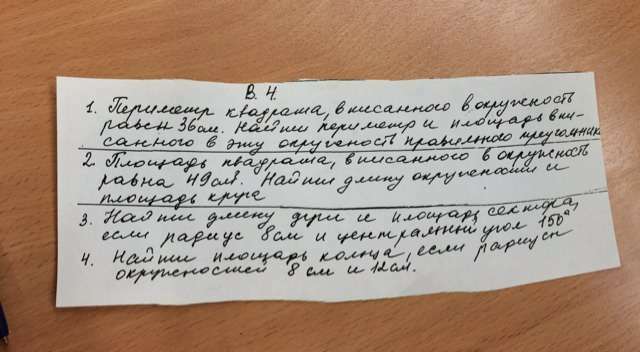 В. 4.
1. Периметр квадрата, вписанного в окружность
равен 36см. Найти периметр и площадь впи-
санного в эту окружность правильного треугольника
2 Площадь квадрата, вписанного в окружность
равна 49см². Найти длину окружности и
площадь круга
3. Найти длину дуги и площадь сектора,
если радиус 8см и центральный угол 150°
4. Найти площадь кольца, если радиусы
окружностей 8 см и 12см.